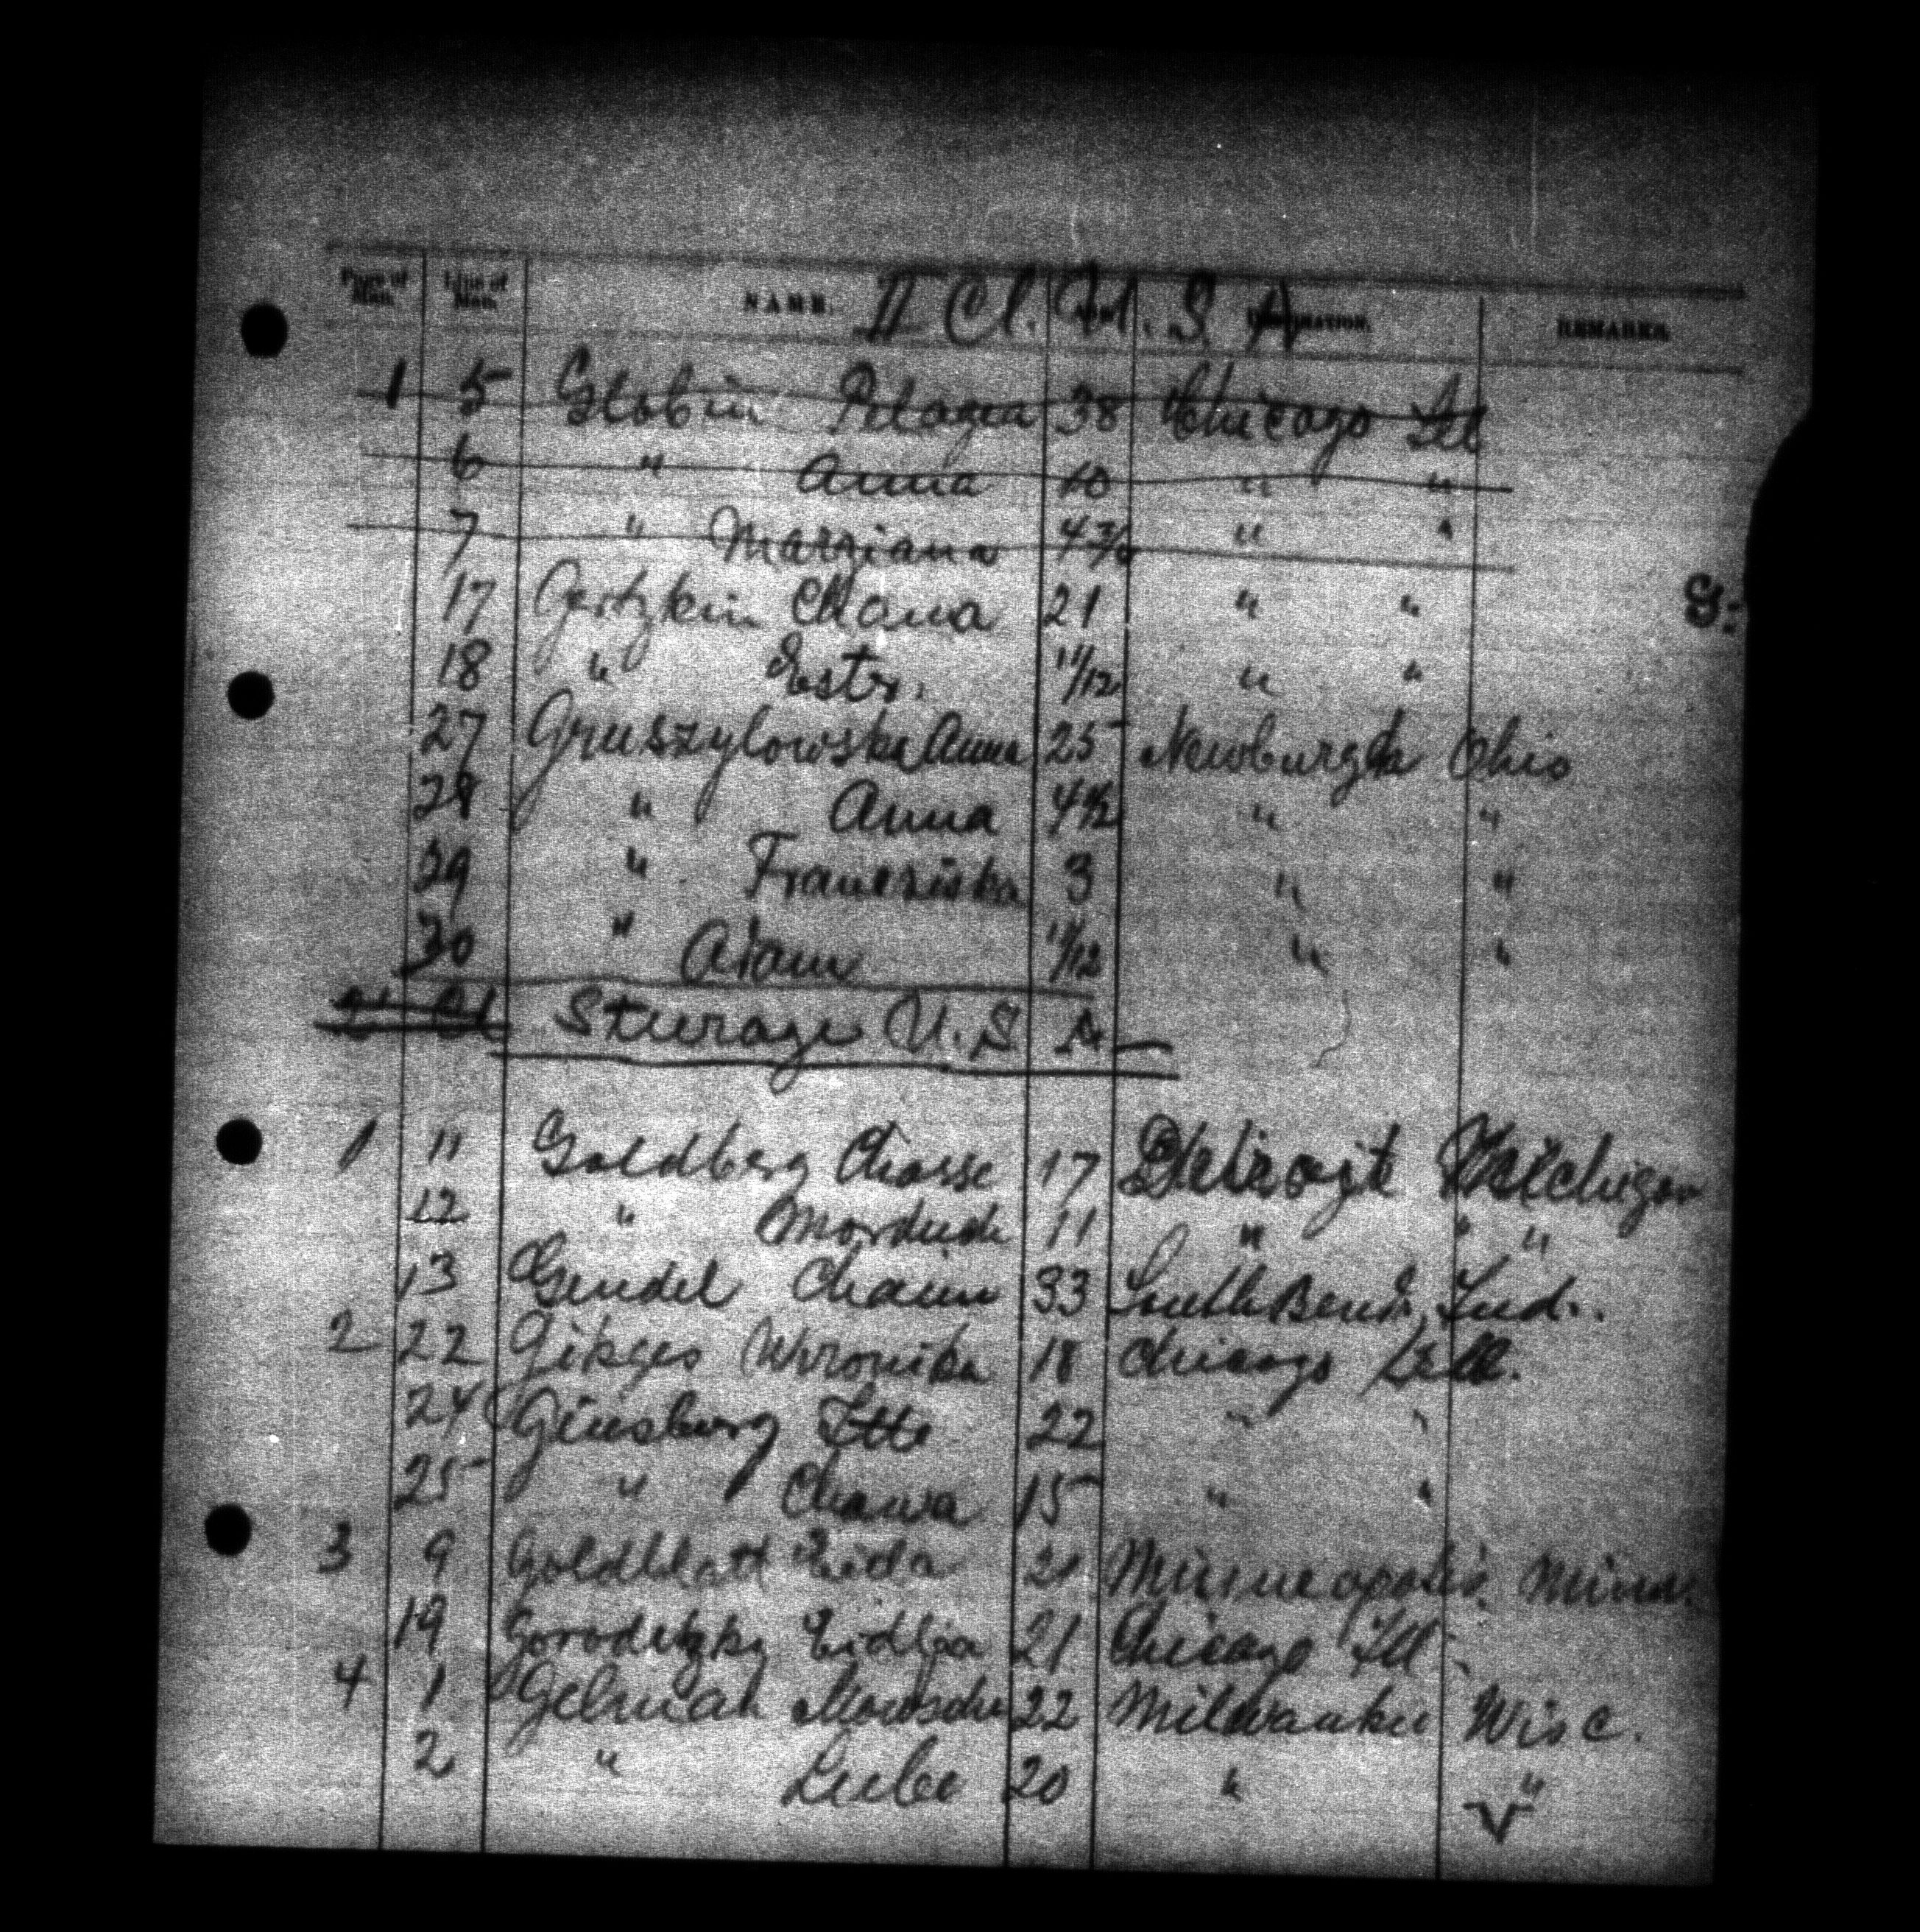 Page of Man. Line of Man. NAME. II Cl. U.S.A DESTINATION. REMARKS.
1 5 Globin Pelagea 38 Chicago Ill
6 " Anna 10 " "
7 " Marziana 4 " "
17 Gertzkin Chana 21 " "
G:
18 " Ester. 11/12 " "
27 Gruszylowska Anna 25 Newburgh Ohio
28 " Anna 4½ " "
29 " Franziska 3 " "
30 " Adam 11/12 " "
Steerage U.S A —
1 11 Goldberg Chasse 17 Detroit Michigan
12 " Morduch 11 " " "
13 Gendel Chaim 33 South Bend, Ind.
2 22 Gikges Weronika 18 Chicago Ill.
24 Ginsburg Itte 22 " "
25 " Chawa 15 " "
3 9 Goldblatt Eida 21 Minneapolis. Minn.
19 Gorodetzky 21 Chicago Ill.
4 1 Gelman Mowscha 22 Milwaukee Wisc.
2 " Leibe 20 " "
V